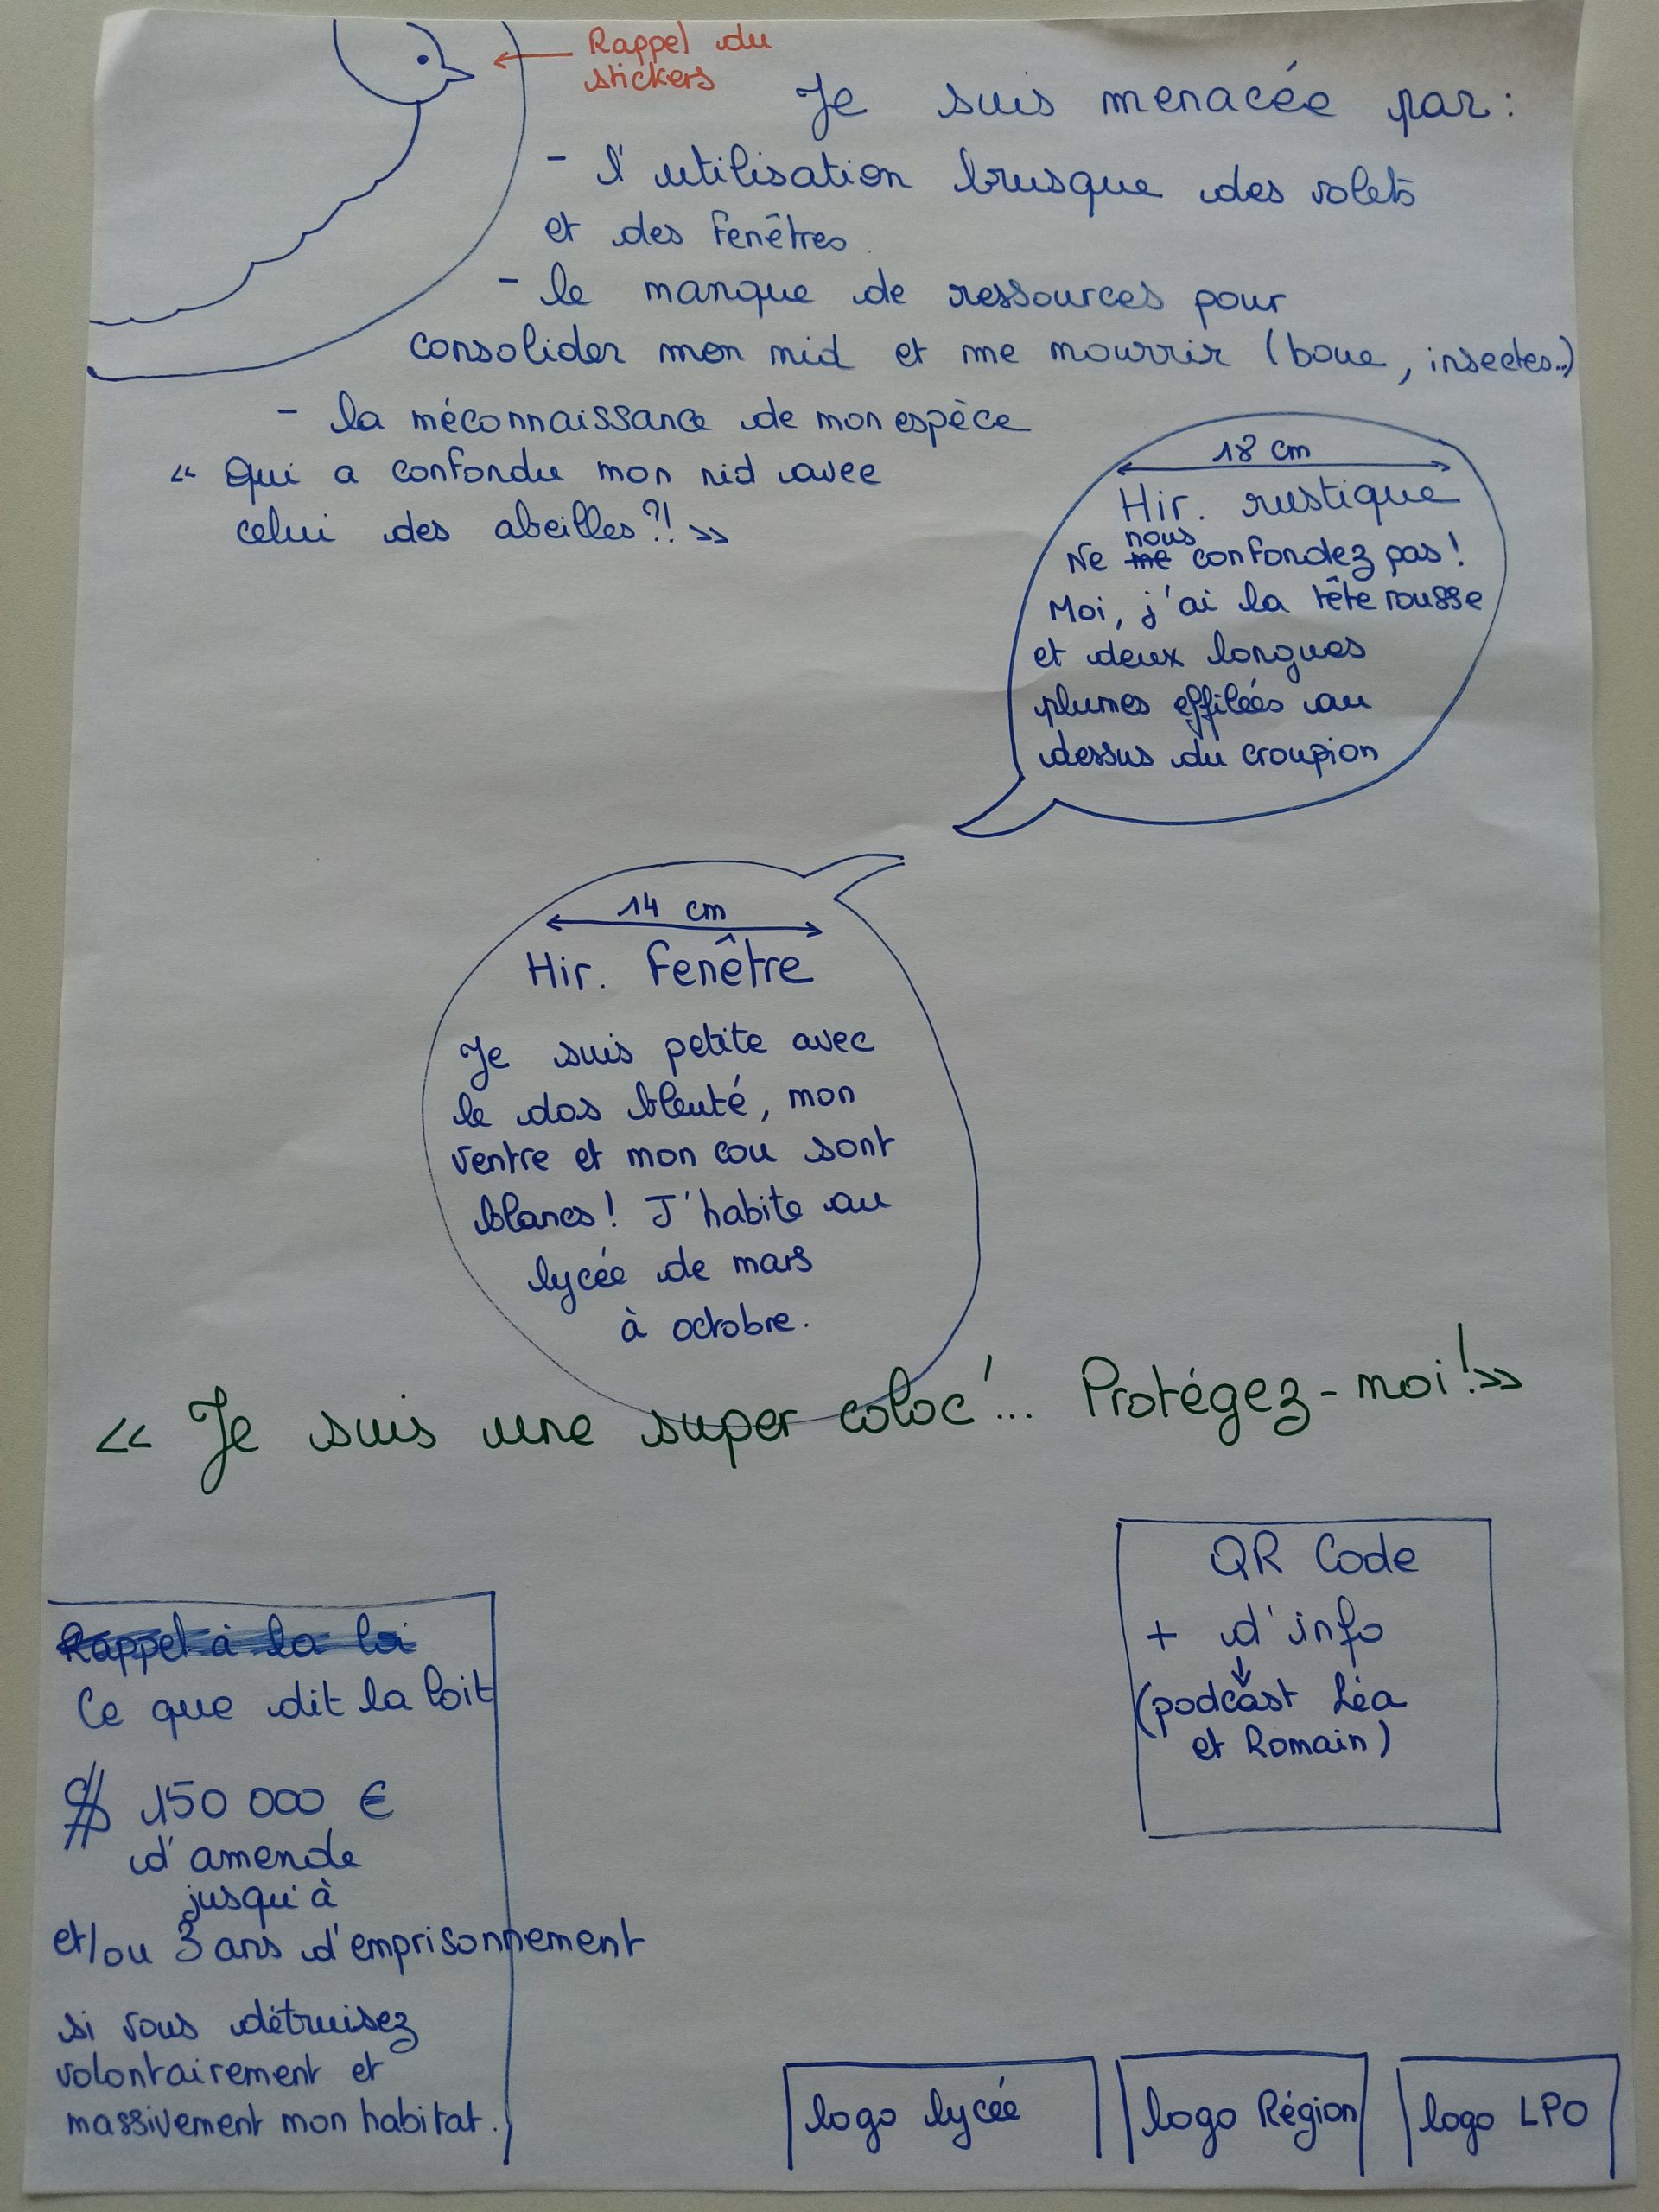 Rappel du
stickers
Je suis menacée par :
- l'utilisation brusque des volets
et des fenêtres.
- le manque de ressources pour
consolider mon nid et me nourrir (boue, insectes...)
- la méconnaissance de mon espèce
« Qui a confondu mon nid avec
celui des abeilles ?! »
18 cm
Hir. rustique
nous
Ne me confondez pas !
Moi, j'ai la tête rousse
et deux longues
plumes effilées au
dessus du croupion
14 cm
Hir. Fenêtre
Je suis petite avec
le dos bleuté, mon
ventre et mon cou sont
blancs ! J'habite au
lycée de mars
à octobre.
« Je suis une super coloc' ... Protégez-moi ! »
QR Code
+ d'info
(podcast Léa
et Romain)
Rappel à la loi
Ce que dit la loit
$ 150 000 €
d'amende
jusqu'à
et/ou 3 ans d'emprisonnement
si vous détruisez
volontairement et
massivement mon habitat.
logo lycée
logo Région
logo LPO